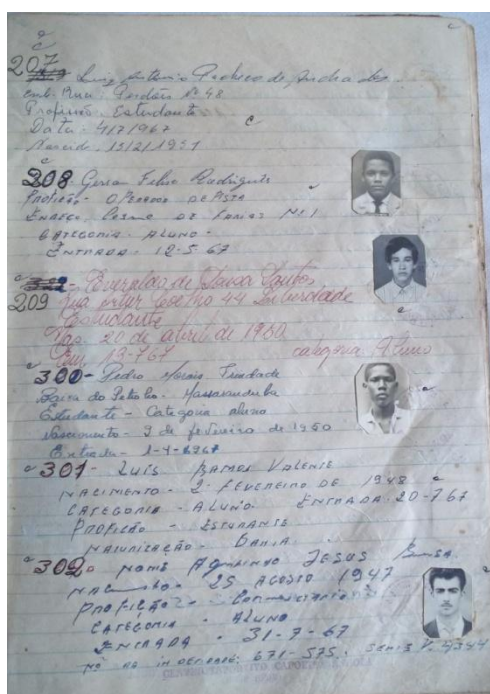 207
Luiz Antonio Pacheco de Andrade
End. Rua: Perdões Nº 48
Profissão: Estudante
Data: 4/7/1967
Nascido: 15/2/1951
208 Gerson Filho Rodrigues
PROFIÇÃO - OPERADOR DE
ENDEÇO, COSME DE FARIAS Nº 1
CATEGORIA. ALUNO -
ENTRADA. 12-5-67
Everaldo de Souza Santos
209 Rua Artur Coelho 44 Liberdade
Estudante
Nas. 20 de abril de 1950
Em 13-767 categoria Aluno
300 - Pedro Morais Trindade
Baixa do Petroleo. Massaranduba
Estudante - Categoria aluno
Nascimento - 9 de fevereiro de 1950
Entrada - 1-4-6967
301 - LUIS RAMOS VALENTE
NACIMENTO - 2 FEVEREIRO DE 1948
CATEGORIA - ALUNO ENTRADA. 20-767
PROFIÇÃO - ESTUDANTE
NATUNIZAÇÃO - BAHIA.
302 NOME AGUINALDO JESUS
25 AGOSTO 1947
PROFIÇÃO - COMERCIARIO
CATEGORIA - ALUNO
ENTRADA - 31-7-67
Nº DA IDENTIDADE. 671-575. SERIE